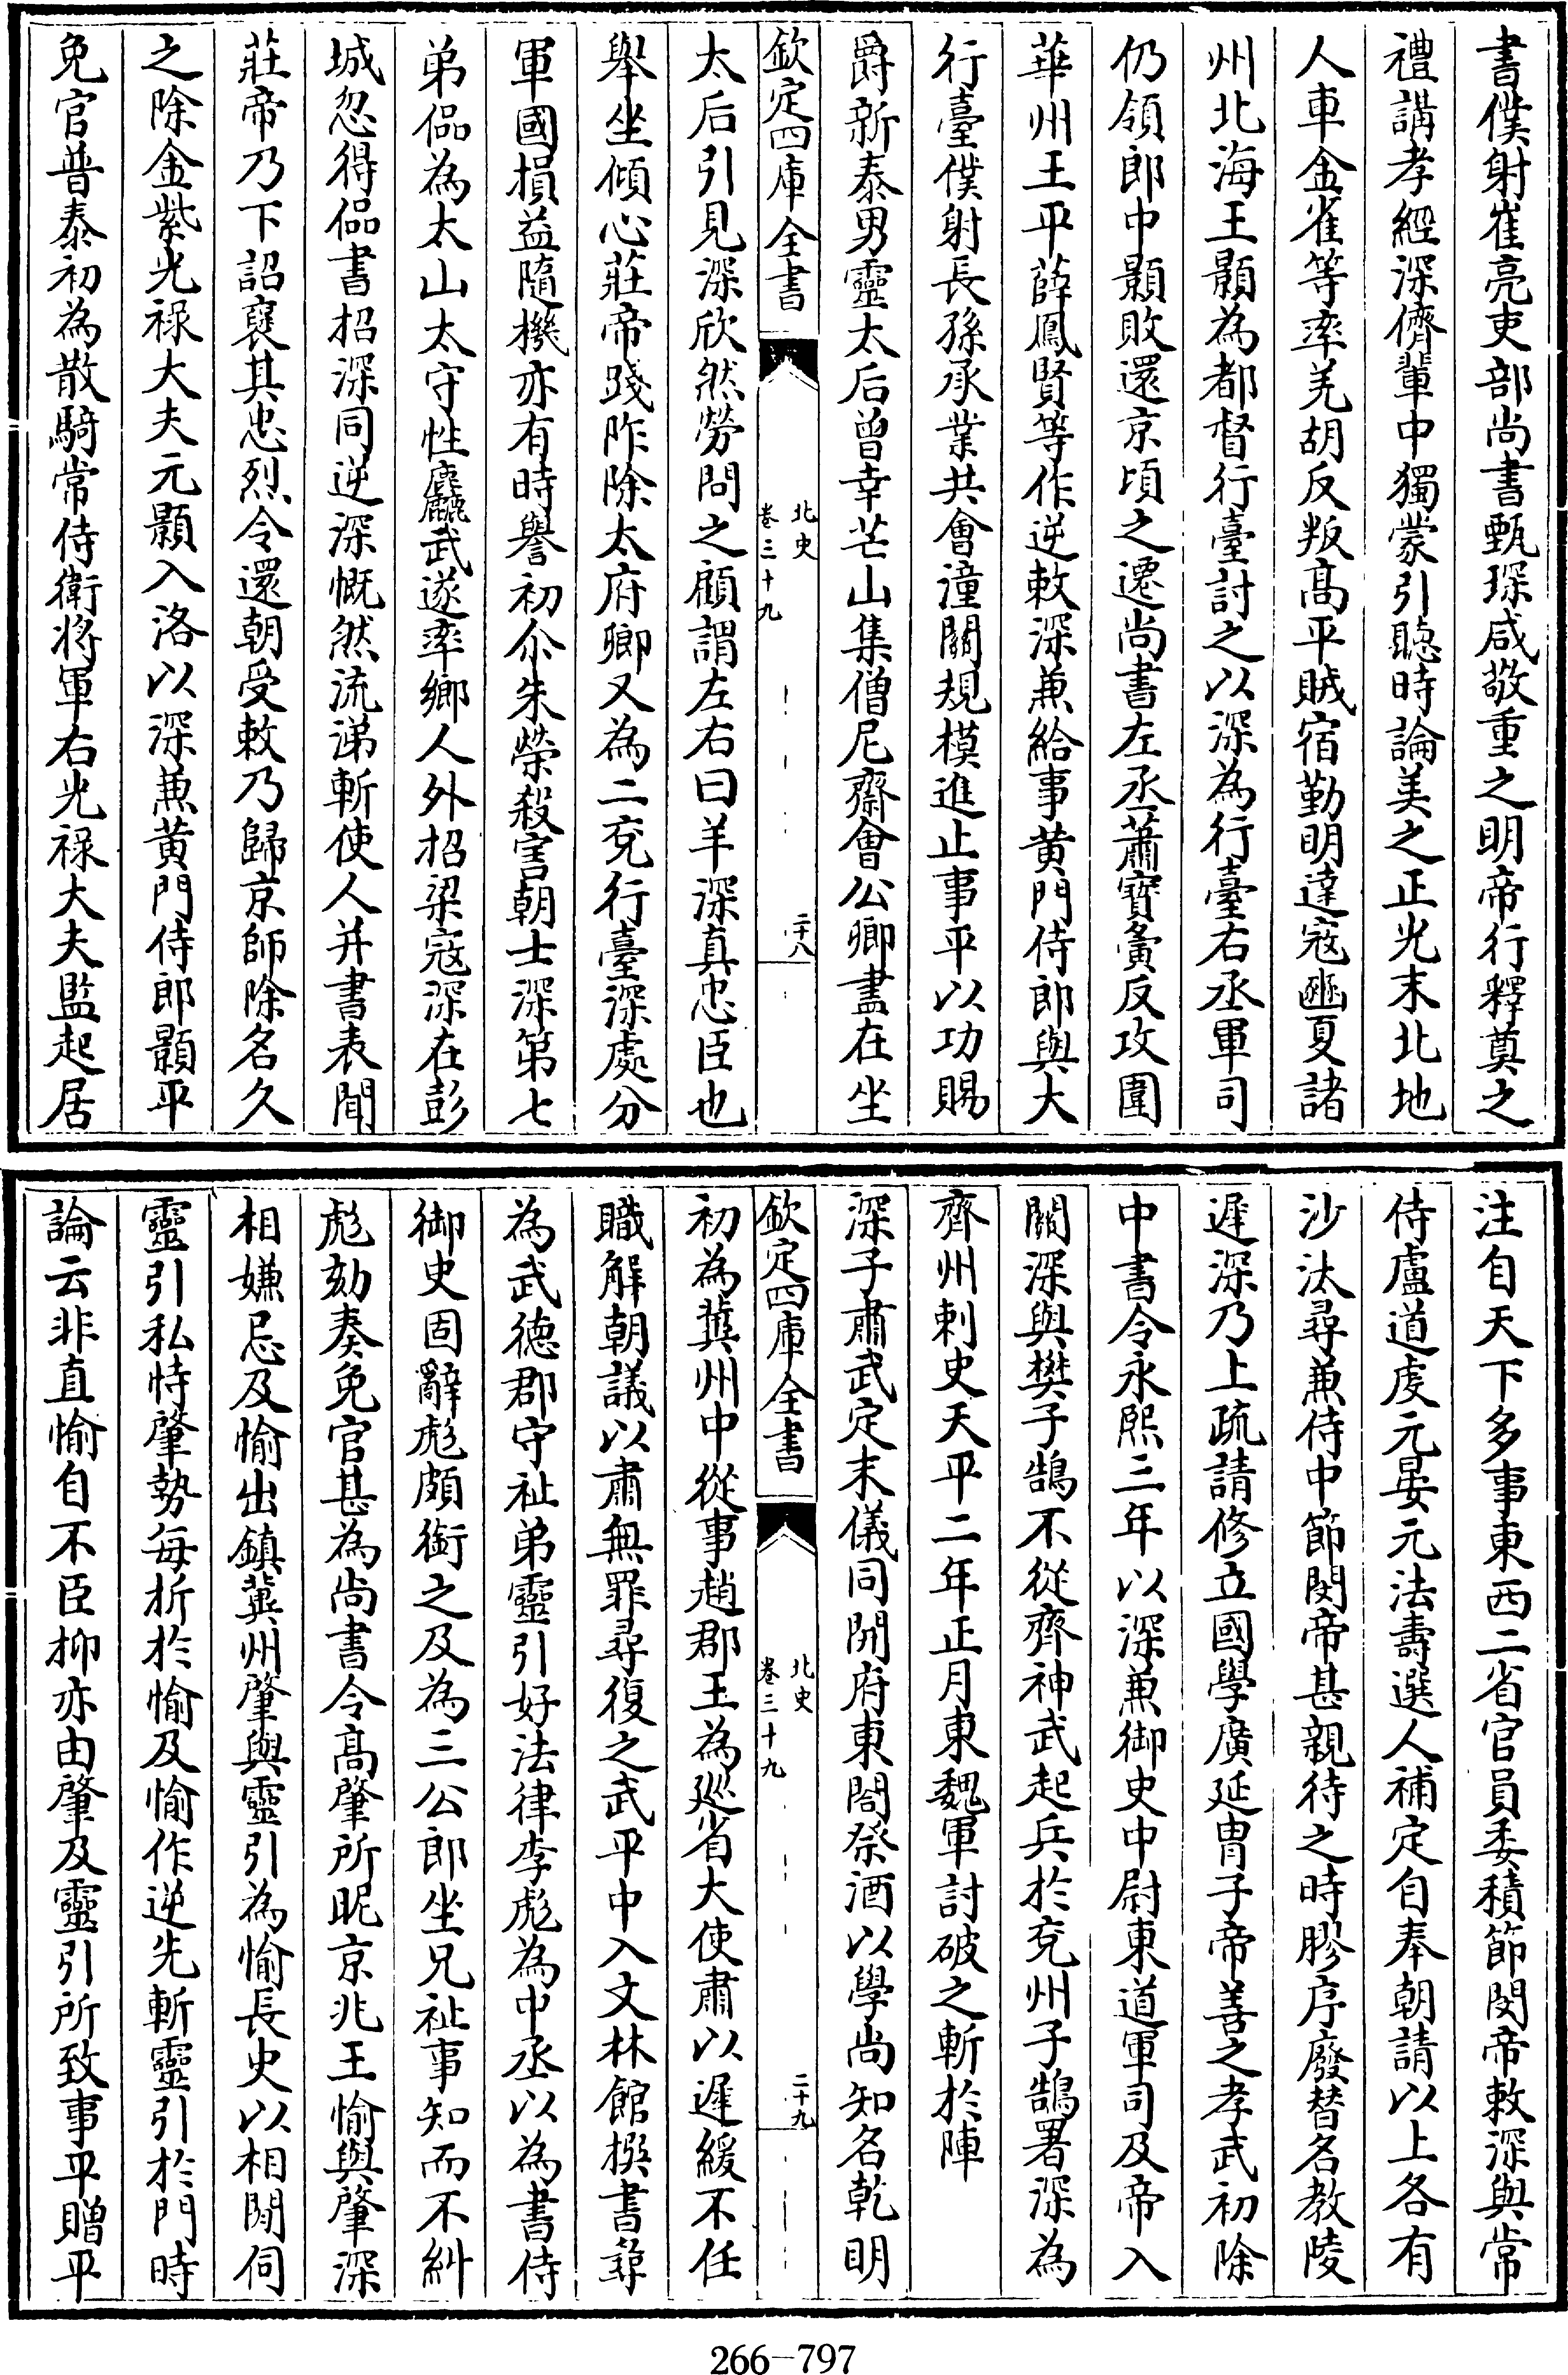 書僕射崔亮吏部尚書甄琛咸敬重之明帝行釋奠之
禮講孝經深儕輩中獨蒙引聽時論美之正光末北地
人車金雀等率羌胡反叛髙平賊宿勤明達寇豳夏諸
州北海王顥為都督行臺討之以深為行臺右丞軍司
仍領郎中顥敗還京頃之遷尚書左丞蕭寳夤反攻圍
華州王平薛鳳賢等作逆敕深兼給事黄門侍郎與大
行臺僕射長孫承業共會潼關規模進止事平以功賜
爵新泰男靈太后曾幸芒山集僧尼齋會公卿盡在坐
欽定四庫全書
北史
卷三十九
二十八
太后引見深欣然勞問之顧謂左右曰羊深真忠臣也
舉坐傾心莊帝踐阼除太府卿又為二兖行臺深處分
軍國損益隨機亦有時譽初尒朱榮殺害朝士深第七
弟偘為太山太守性麤武遂率鄉人外招梁寇深在彭
城忽得偘書招深同逆深慨然流涕斬使人并書表聞
莊帝乃下詔褒其忠烈令還朝受敕乃歸京師除名久
之除金紫光禄大夫元顥入洛以深兼黄門侍郎顥平
免官普泰初為散騎常侍衛將軍右光禄大夫監起居
注自天下多事東西二省官員委積節閔帝敕深與常
侍盧道虔元晏元法壽選人補定自奉朝請以上各有
沙汰尋兼侍中節閔帝甚親待之時膠序廢替名教陵
遲深乃上疏請修立國學廣延胄子帝善之孝武初除
中書令永熙三年以深兼御史中尉東道軍司及帝入
關深與樊子鵠不從齊神武起兵於兖州子鵠署深為
齊州刺史天平二年正月東魏軍討破之斬於陣
深子肅武定末儀同開府東閤祭酒以學尚知名乾明
欽定四庫全書
北史
卷三十九
二十九
初為冀州中從事趙郡王為廵省大使肅以遲緩不任
職解朝議以肅無罪尋復之武平中入文林館撰書尋
為武徳郡守祉弟靈引好法律李彪為中丞以為書侍
御史固辭彪頗銜之及為三公郎坐兄祉事知而不糾
彪劾奏免官甚為尚書令髙肇所昵京兆王愉與肇深
相嫌忌及愉出鎮冀州肇與靈引為愉長史以相間伺
靈引私恃肇勢每折於愉及愉作逆先斬靈引於門時
論云非直愉自不臣抑亦由肇及靈引所致事平贈平
266-797